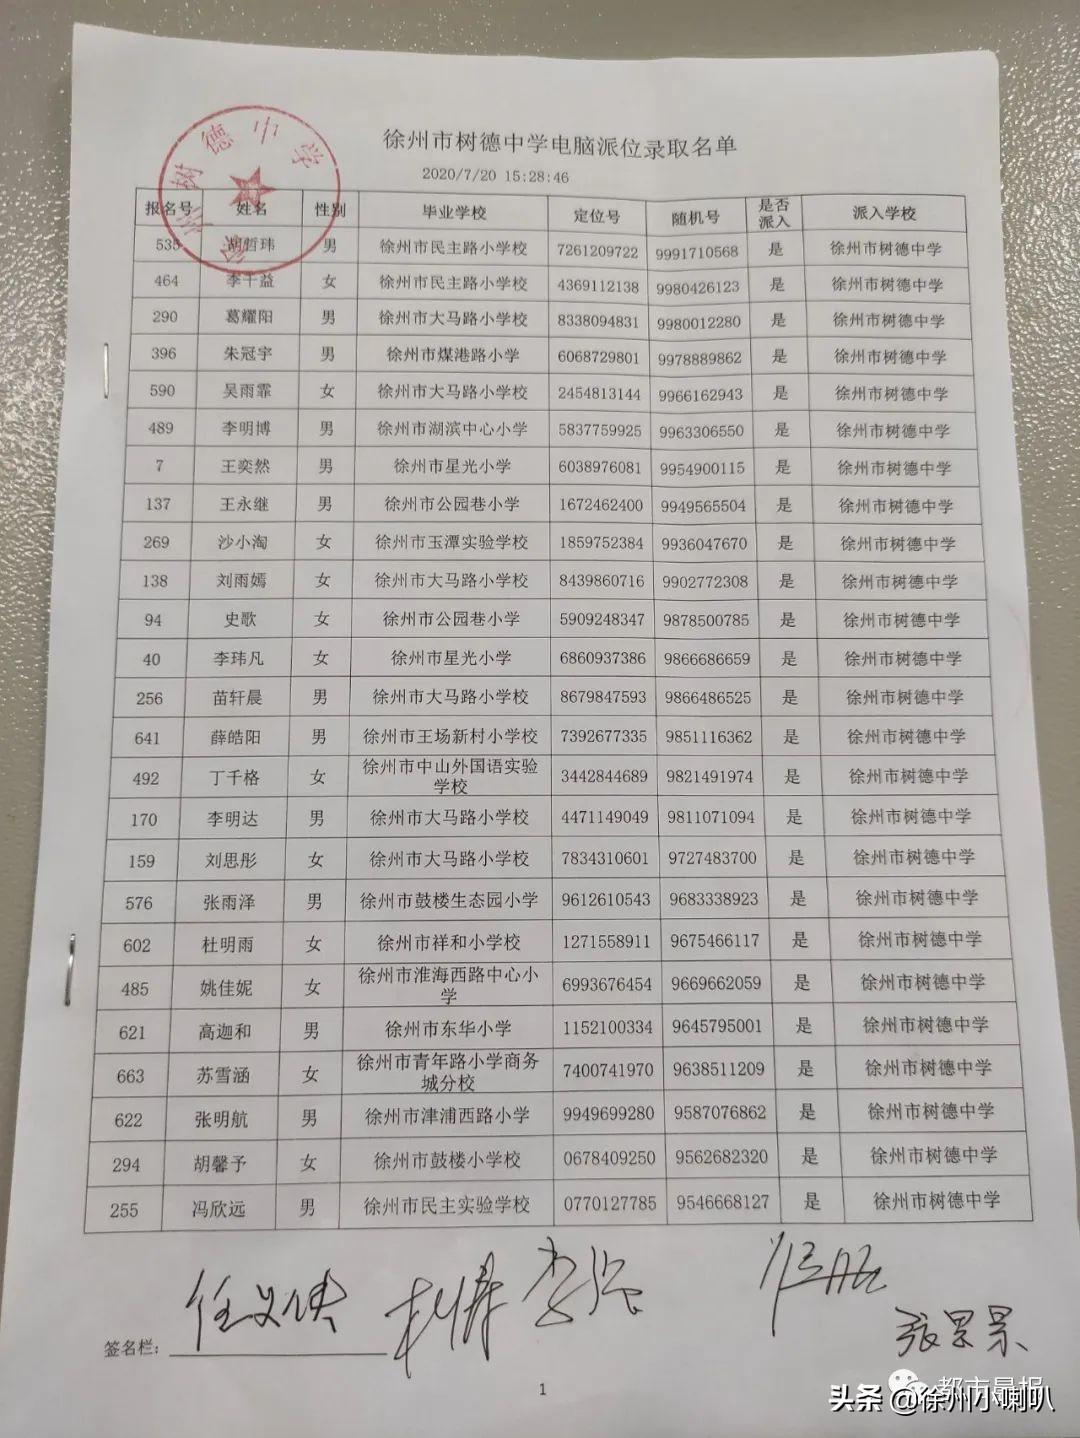 徐州市树德中学电脑派位录取名单
2020/7/20 15:28:46
报名号 姓名 性别 毕业学校 定位号 随机号 是否派入 派入学校
535 胡哲玮 男 徐州市民主路小学校 7261209722 9991710568 是 徐州市树德中学
464 李千益 女 徐州市民主路小学校 4369112138 9980426123 是 徐州市树德中学
290 葛耀阳 男 徐州市大马路小学校 8338094831 9980012280 是 徐州市树德中学
396 朱冠宇 男 徐州市煤港路小学 6068729801 9978889862 是 徐州市树德中学
590 吴雨霏 女 徐州市大马路小学校 2454813144 9966162943 是 徐州市树德中学
489 李明博 男 徐州市湖滨中心小学 5837759925 9963306550 是 徐州市树德中学
7 王奕然 男 徐州市星光小学 6038976081 9954900115 是 徐州市树德中学
137 王永继 男 徐州市公园巷小学 1672462400 9949565504 是 徐州市树德中学
269 沙小淘 女 徐州市玉潭实验学校 1859752384 9936047670 是 徐州市树德中学
138 刘雨嫣 女 徐州市大马路小学校 8439860716 9902772308 是 徐州市树德中学
94 史歌 女 徐州市公园巷小学 5909248347 9878500785 是 徐州市树德中学
40 李玮凡 女 徐州市星光小学 6860937386 9866686659 是 徐州市树德中学
256 苗轩晨 男 徐州市大马路小学校 8679847593 9866486525 是 徐州市树德中学
641 薛皓阳 男 徐州市王场新村小学校 7392677335 9851116362 是 徐州市树德中学
492 丁千格 女 徐州市中山外国语实验学校 3442844689 9821491974 是 徐州市树德中学
170 李明达 男 徐州市大马路小学校 4471149049 9811071094 是 徐州市树德中学
159 刘思彤 女 徐州市大马路小学校 7834310601 9727483700 是 徐州市树德中学
576 张雨泽 男 徐州市鼓楼生态园小学 9612610543 9683338923 是 徐州市树德中学
602 杜明雨 女 徐州市祥和小学校 1271558911 9675466117 是 徐州市树德中学
485 姚佳妮 女 徐州市淮海西路中心小学 6993676454 9669662059 是 徐州市树德中学
621 高迦和 男 徐州市东华小学 1152100334 9645795001 是 徐州市树德中学
663 苏雪涵 女 徐州市青年路小学商务城分校 7400741970 9638511209 是 徐州市树德中学
622 张明航 男 徐州市津浦西路小学 9949699280 9587076862 是 徐州市树德中学
294 胡馨予 女 徐州市鼓楼小学校 0678409250 9562682320 是 徐州市树德中学
255 冯欣远 男 徐州市民主实验学校 0770127785 9546668127 是 徐州市树德中学
签名栏:
1
都市晨报
头条 @徐州小喇叭